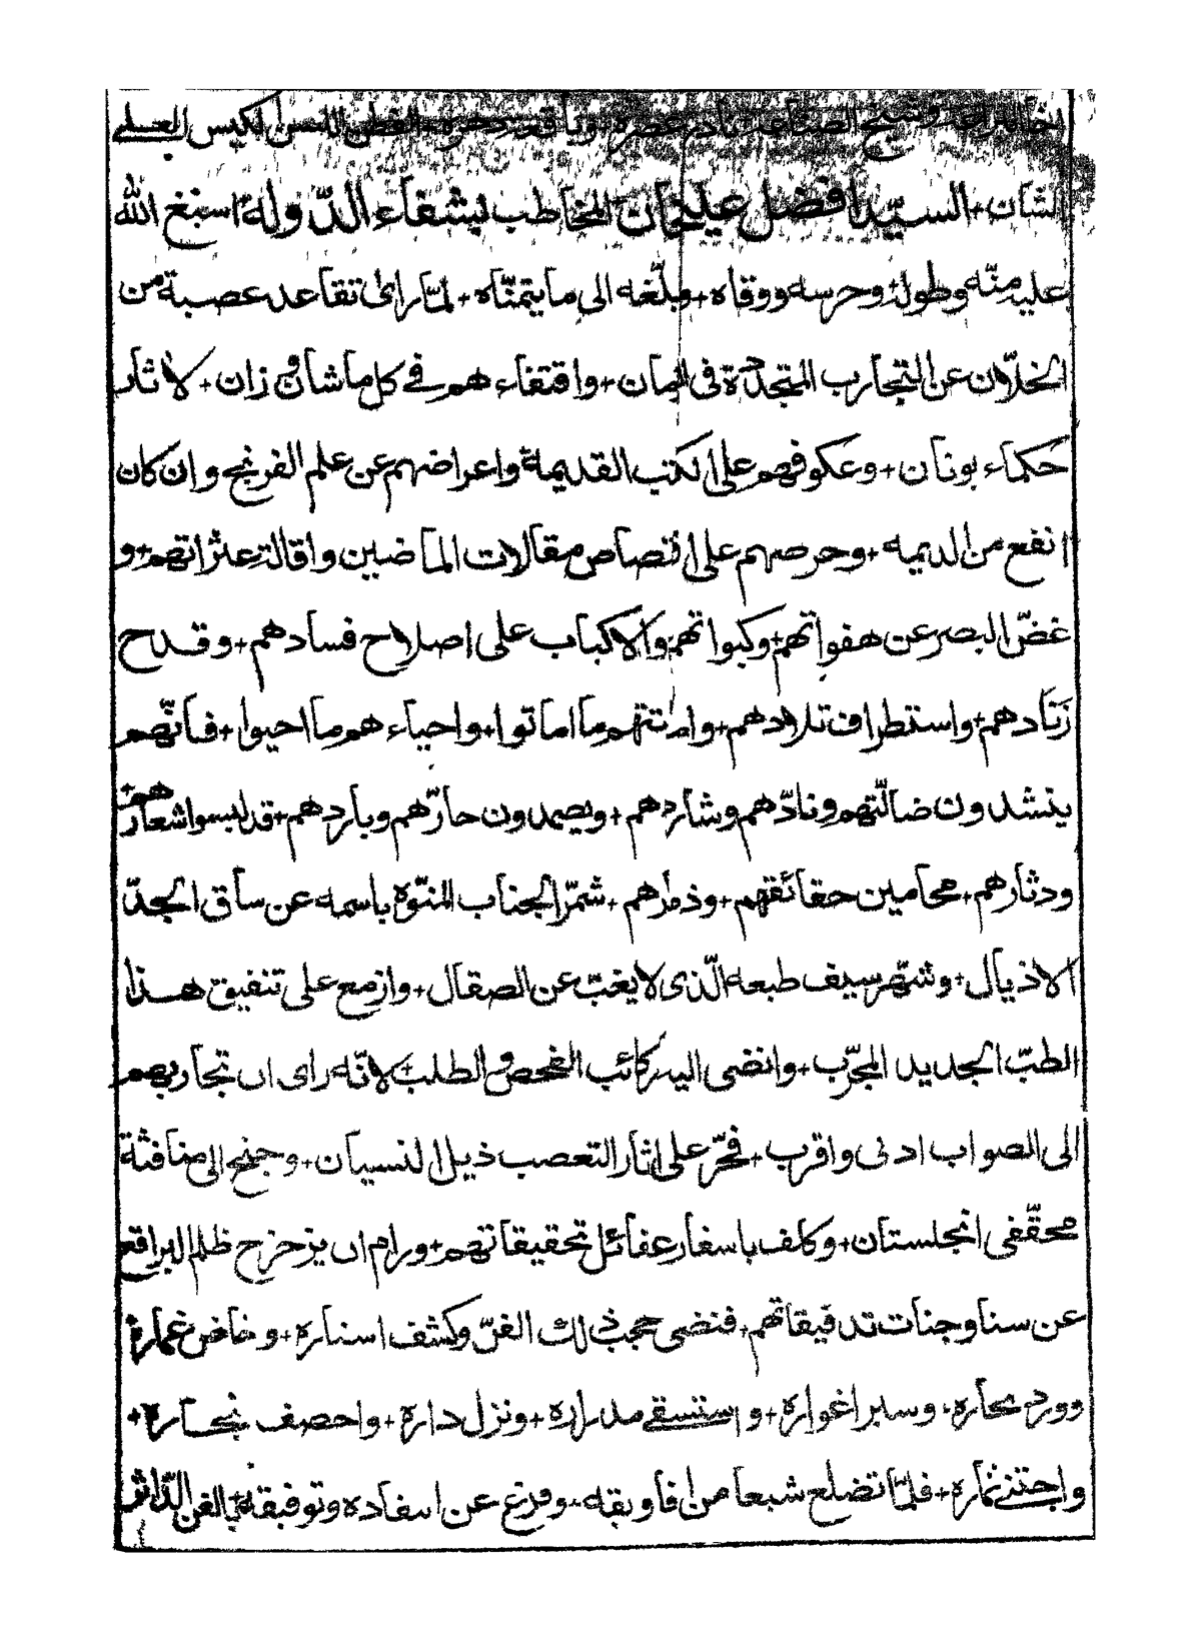 وشيخ الصناعة نادر عصره + وناقد دهره + الفطن اللسن الكيس العلي
الشان + السيّد افضل عليخان المخاطب بشفاء الدّولة اسبغ الله
عليه منّه وطوله + وحرسه ووقاه + وبلّغه الى ما يتمنّاه + لمّا راى تقاعد عصبة من
الخلّان عن التجارب المتجدّدة فى الزمان + واقتفاءهم فے كل ما شان وزان + لاثار
حكماء يونان + وعكوفهم على الكتب القديمة واعراضهم عن علم الفرنج وان كان
انفع من الديمه + وحرصهم على اقتصاص مقالات الماضين واقالة عثراتهم + و
غضّ البصر عن هفواتهم + وكبواتهم + والاكباب على اصلاح فسادهم + وقدح
زنادهم + واستطراف تلادهم + وامتتهم ما اماتوا + واحياءهم ما احيوا + فانّهم
ينشدون ضالّتهم ونادّهم وشاردهم + ويصمدون حارّهم وباردهم + قد لبسوا شعارهم +
ودثارهم + محامين حقائقهم + وذمارهم + شمّر الجناب المنوّه باسمه عن ساق الجدّ
الاذيال + وشهّر سيف طبعه الّذى لا يغبّ عن الصقال + وازمع على تنفيق هذا
الطبّ الجديد المجرّب + وانضى اليه ركائب الفحص والطلب + لانّه راى ان تجاربهم
الى الصواب ادنى واقرب + فجّر على اثار التعصب ذيل النسيان + وجنح الى منافثة
محقّفى انجلستان + وكلف باسفار عفائل تحقيقاتهم + ورام ان يزحزح ظلم البراقع
عن سنا وجنات تدقيقاتهم + فنضى حجب ذلك الفنّ وكشف استاره + وخاض غماره
وورد بحاره + وسبر اغواره + واستسقے مدراره + ونزل داره + واحصف نجاره +
واجتنے ثماره + فلمّا تضلع شبعا من افاويقه + وفرغ عن اسفاده وتوفيقه + بالفن الدّاثر